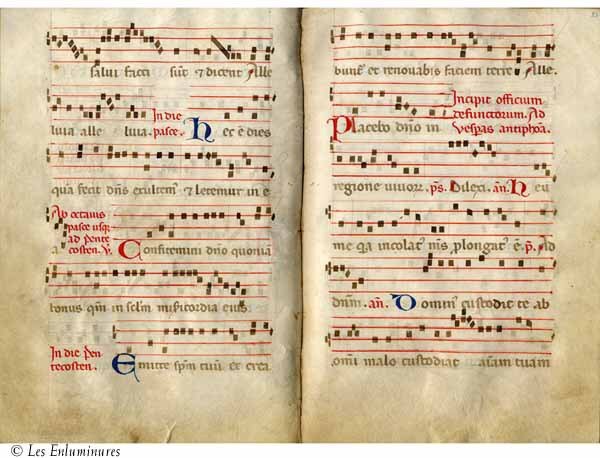 salui facti sūt & dicent Alle
luia alle luia. In die pasce. Hec ē dies
quā fecit dn̄s exultem᷒ & letemur in e
a Ab octauis pasce usq; ad pente costen. v. Confitemini dnō quoniā
bonus qm̄ in sclm̄ misericordia eius.
In die pen tecosten. Emitte spm̄ tuū et crea
bunt᷒ et renouabis faciem terre Alle.
Placebo dnō in Incipit officium defunctorum. Ad vesp̄as antiphōa.
regione viuor. p̄s. Dilexi. an̄. Heu
me qa incolat᷒ m̄s prolongat᷒ ē. p̄. Ad
dnm̄. an̄. Domin᷒ custodit te ab
omī malo custodiat aīam tuam
© Les Enluminures